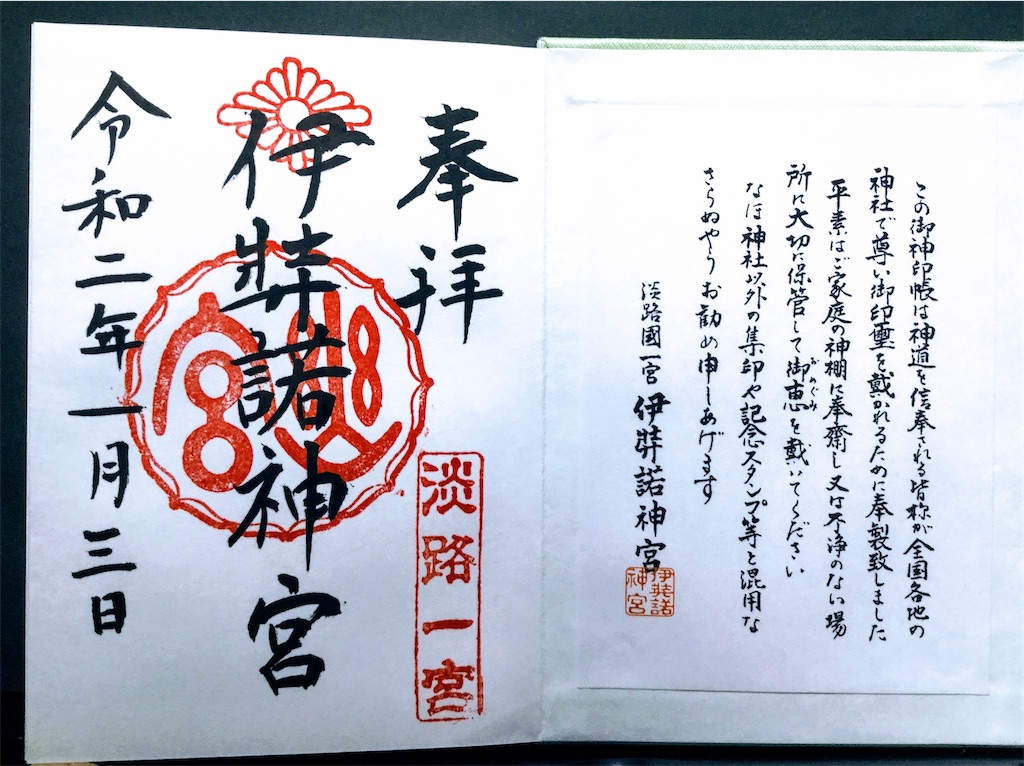 この御神印帳は神道を信奉される皆様が全国各地の
神社で尊い御印璽を戴かれるために奉製致しました
平素はご家庭の神棚に奉齋し又は不浄のない場
所に大切に保管して御恵を戴いてください
めぐみ
なほ神社以外の集印や記念スタンプ等と混用な
さらぬやうお勧め申しあげます
淡路國一宮 伊弉諾神宮
伊弉諾
神宮
奉拝
淡路一宮
伊弉諾神宮
令和二年一月三日